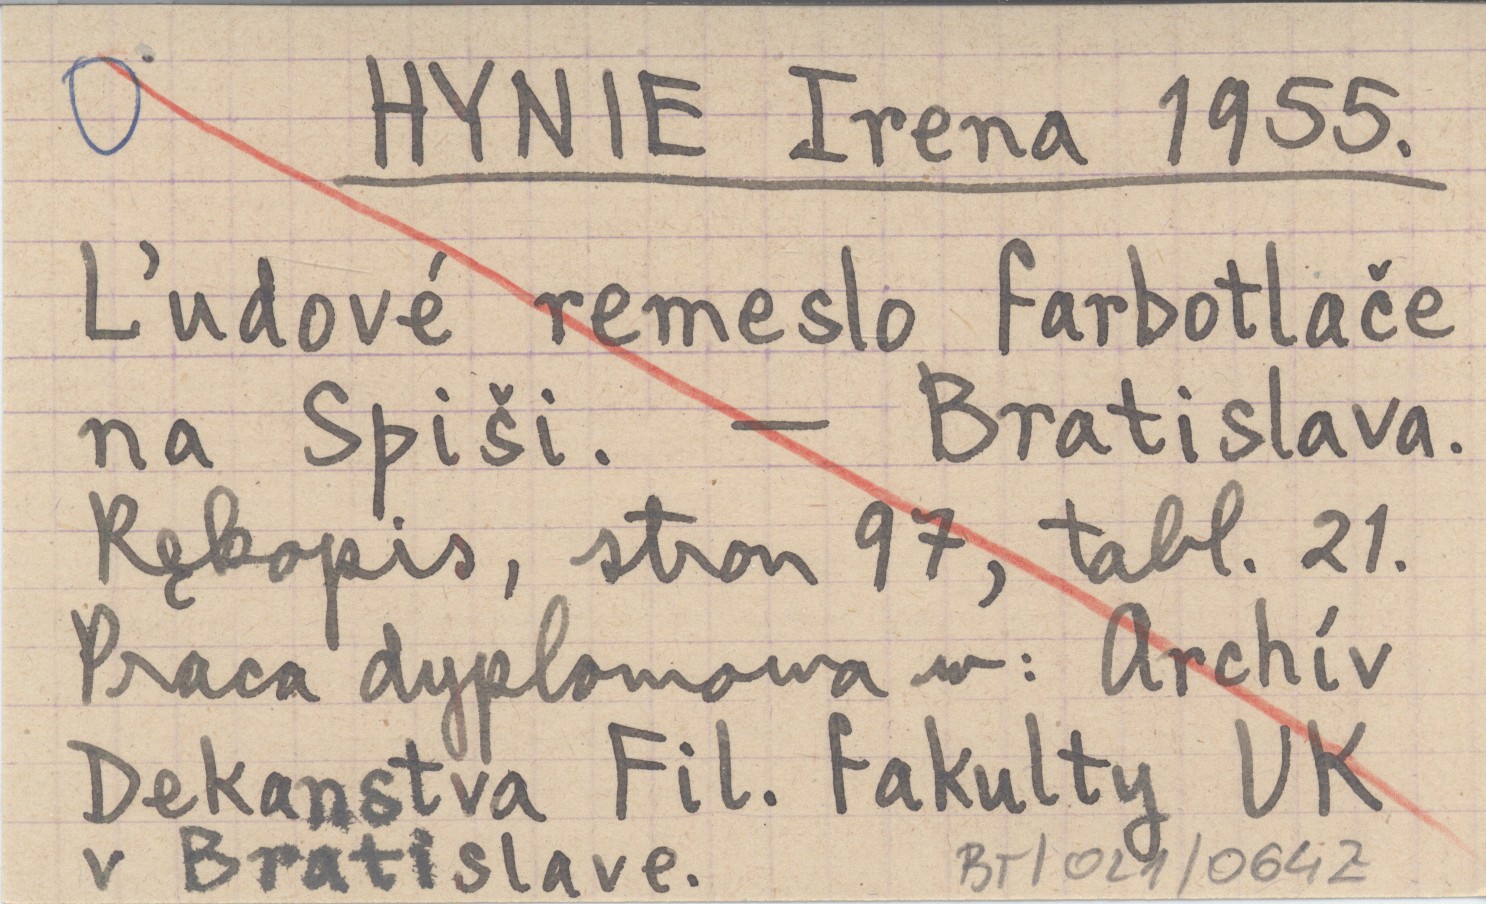 HYNIE Irena 1955.
Ľudové remeslo farbotlače
na Spiši. — Bratislava.
Rękopis, stron 97, tabl. 21.
Praca dyplomowa w: Archív
Dekanstva Fil. fakulty UK
v Bratislave.
BT/021/0642